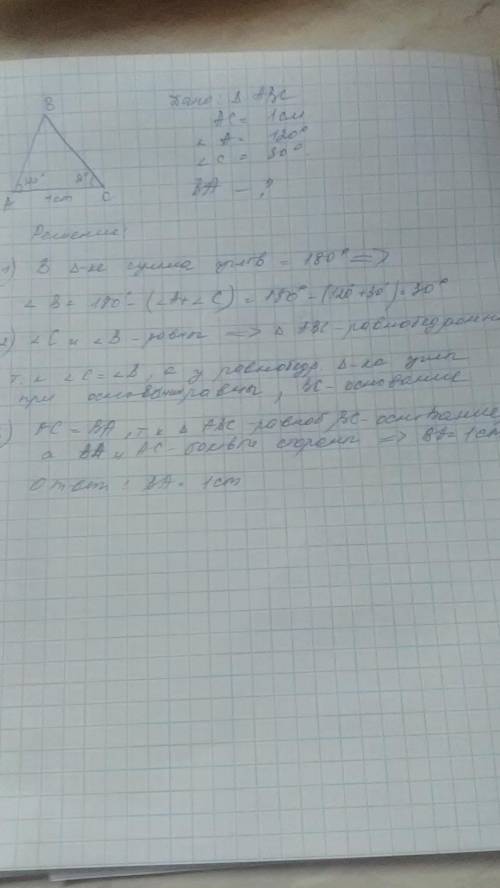 B
120°
30°
A
1cm
C
Дано: Δ ABC
AC = 1см
∠ A = 120°
∠ C = 30°
BA - ?
Решение:
1) В Δ-ке сумма углов = 180° =>
∠ B = 180° - (∠A+∠C) = 180° - (120°+30°) = 30°
2) ∠C и ∠B - равны => Δ ABC - равнобедренный
т. к ∠C = ∠B, а у равнобедр. Δ-ка углы
при основан равны, BC - основание
) AC = BA, т к Δ ABC - равноб BC - основание,
а BA и AC - боковые стороны => BA = 1cm
Ответ: BA = 1cm